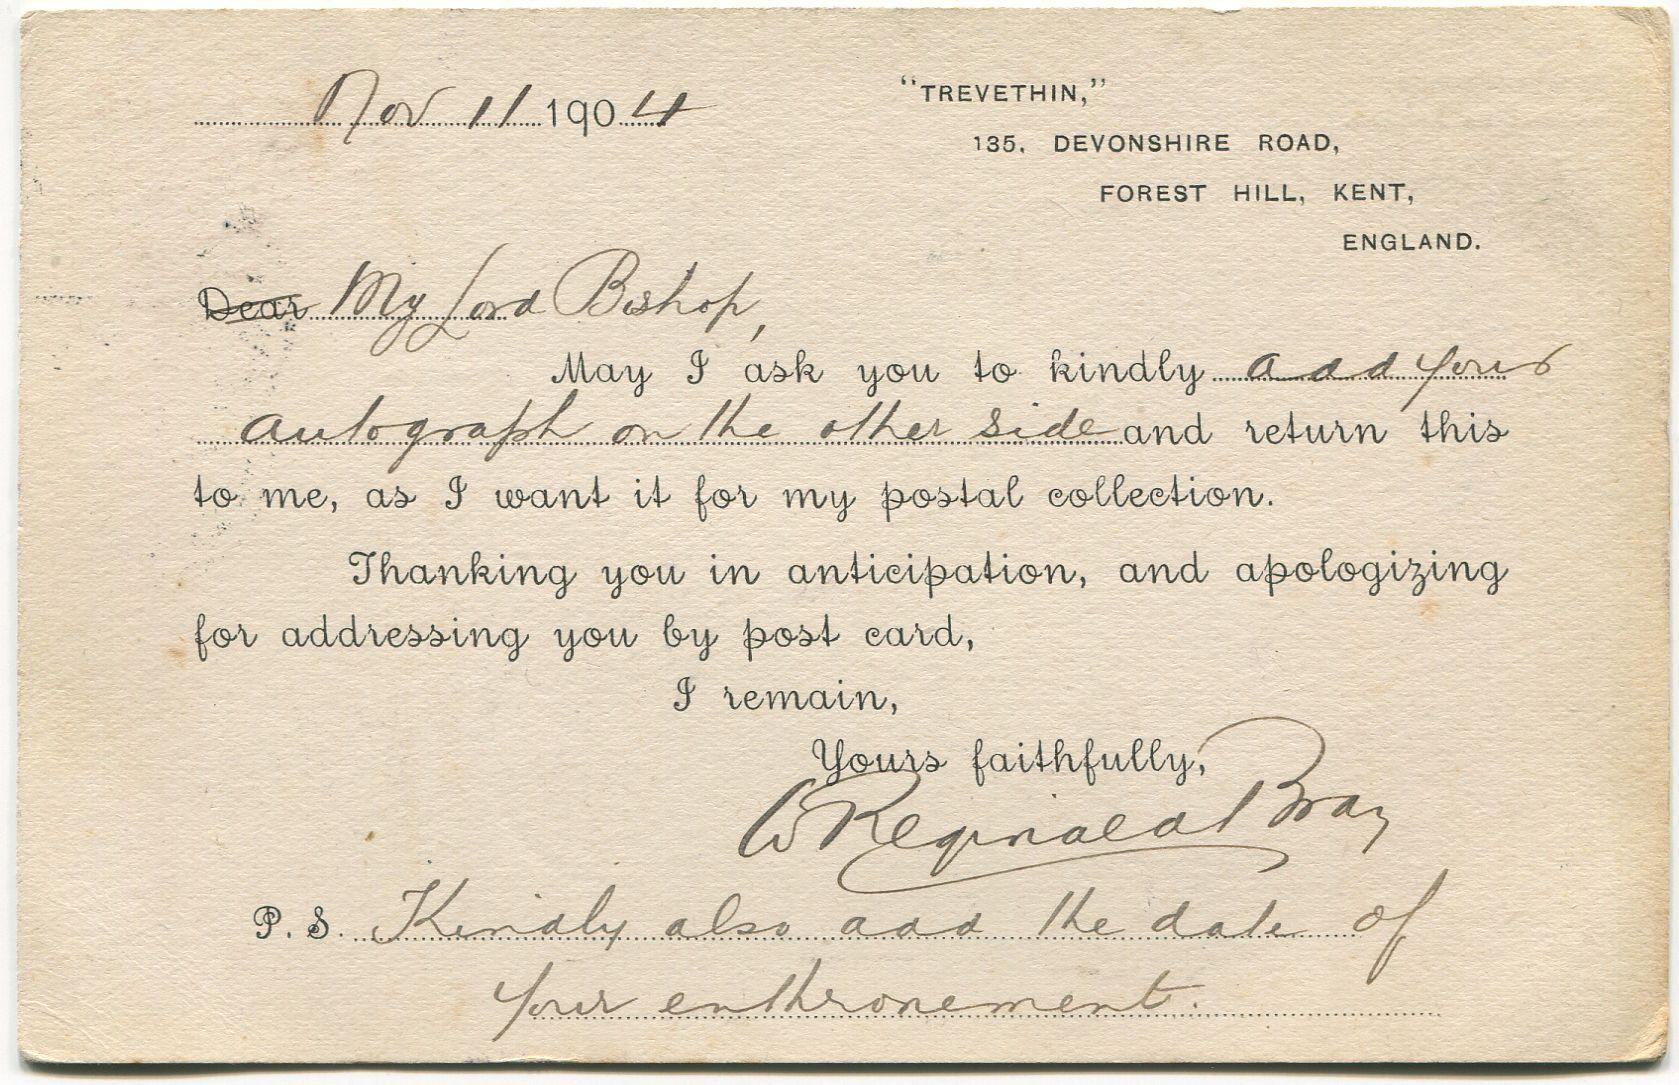 Nov 11 1904
"TREVETHIN,"
135, DEVONSHIRE ROAD,
FOREST HILL, KENT,
ENGLAND.
Dear My Lord Bishop,
May I ask you to kindly add your
autograph on the other side and return this
to me, as I want it for my postal collection.
Thanking you in anticipation, and apologizing
for addressing you by post card,
I remain,
Yours faithfully,
W Reginald Bray
P. S. Kindly also add the date of
your enthronement.